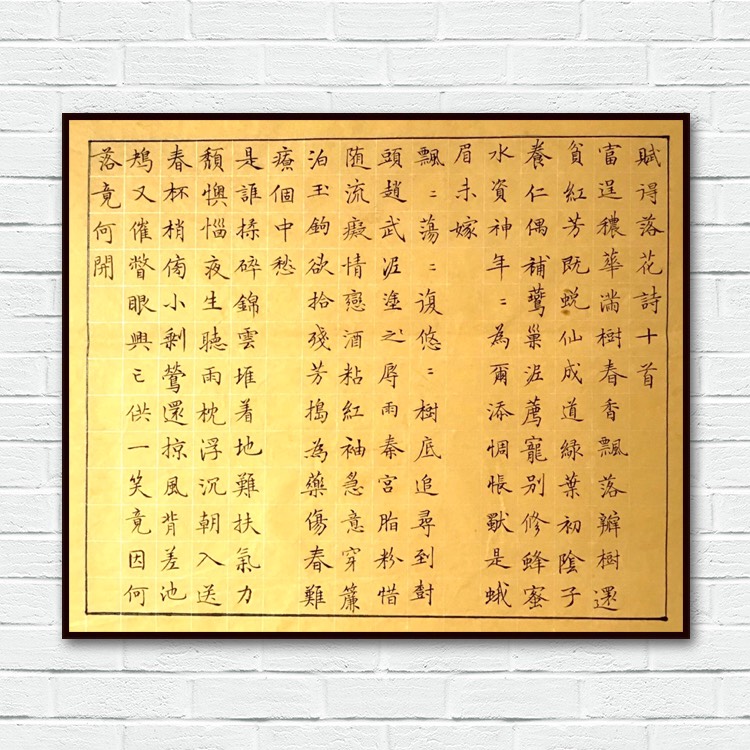 賦得落花詩十首
富逞穠華滿樹春香飄落瓣樹還
貧紅芳既蛻仙成道綠葉初陰子
養仁偶補鶯巢泥薦寵別修蜂蜜
水資神年〻為爾添惆悵獸是蛾
眉未嫁
飄〻蕩〻復悠〻樹底追尋到對
頭趙武泥塗之辱雨秦宮脂粉惜
随流癡情戀酒粘紅袖急意穿簾
泊玉鉤欲拾殘芳搗為藥傷春難
療個中愁
是誰揉碎錦雲堆着地難扶氣力
頹懊惱夜生聽雨枕浮沉朝入送
春杯梢傍小剩鶯還掠風背差池
鴆又催瞥眼興亡供一笑竟因何
落竟何開